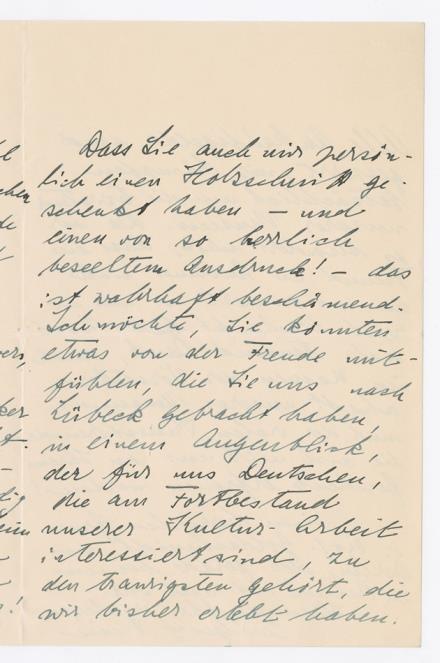 Dass Sie auch mir persön-
lich einen Holzschnitt ge-
schenkt haben – und
einen von so herrlich
beseeltem Ausdruck! – das
ist wahrhaft beschämend.
Ich möchte, Sie könnten
etwas von der Freude mit-
fühlen, die Sie uns nach
Lübeck gebracht haben,
in einem Augenblick,
der für uns Deutschen,
die am Fortbestand
unserer Kultur-Arbeit
interessiert sind, zu
den traurigsten gehört, die
wir bisher erlebt haben.